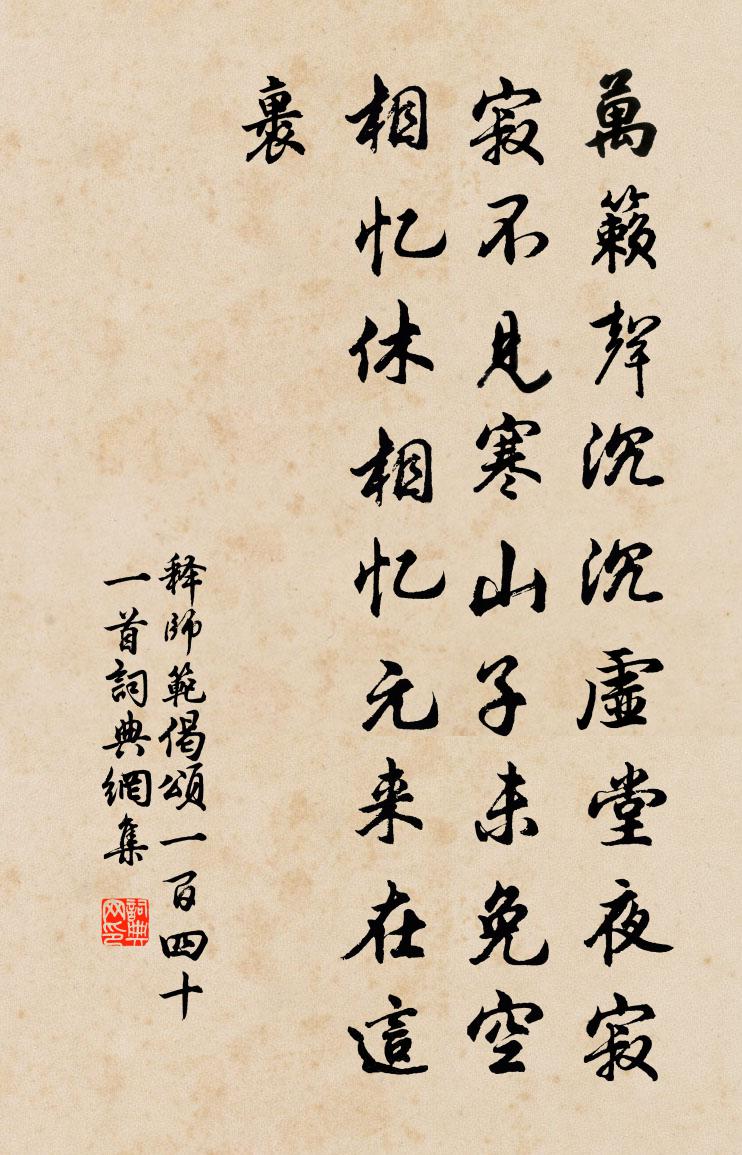 萬籟聲沉沉虛堂夜寂
寂不見寒山子未免空
相忆休相忆元来在這
裏
释師範偈頌一百四十
一首詞典網集
詞典
网印